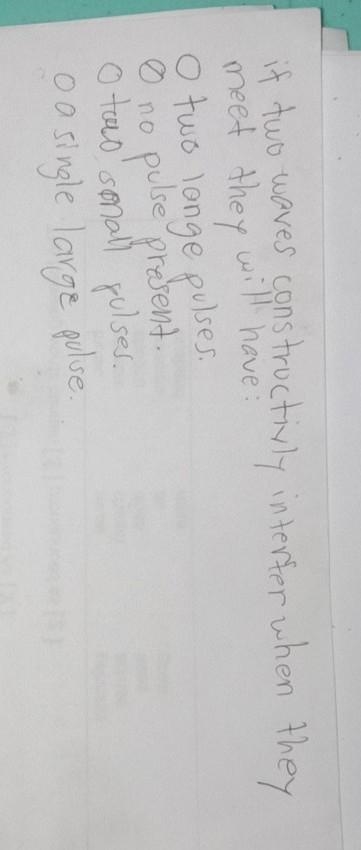 if two waves constructivly interfer when they
meet they will have:
O two large pulses.
O no pulse present.
O two small pulses.
O a single large pulse.